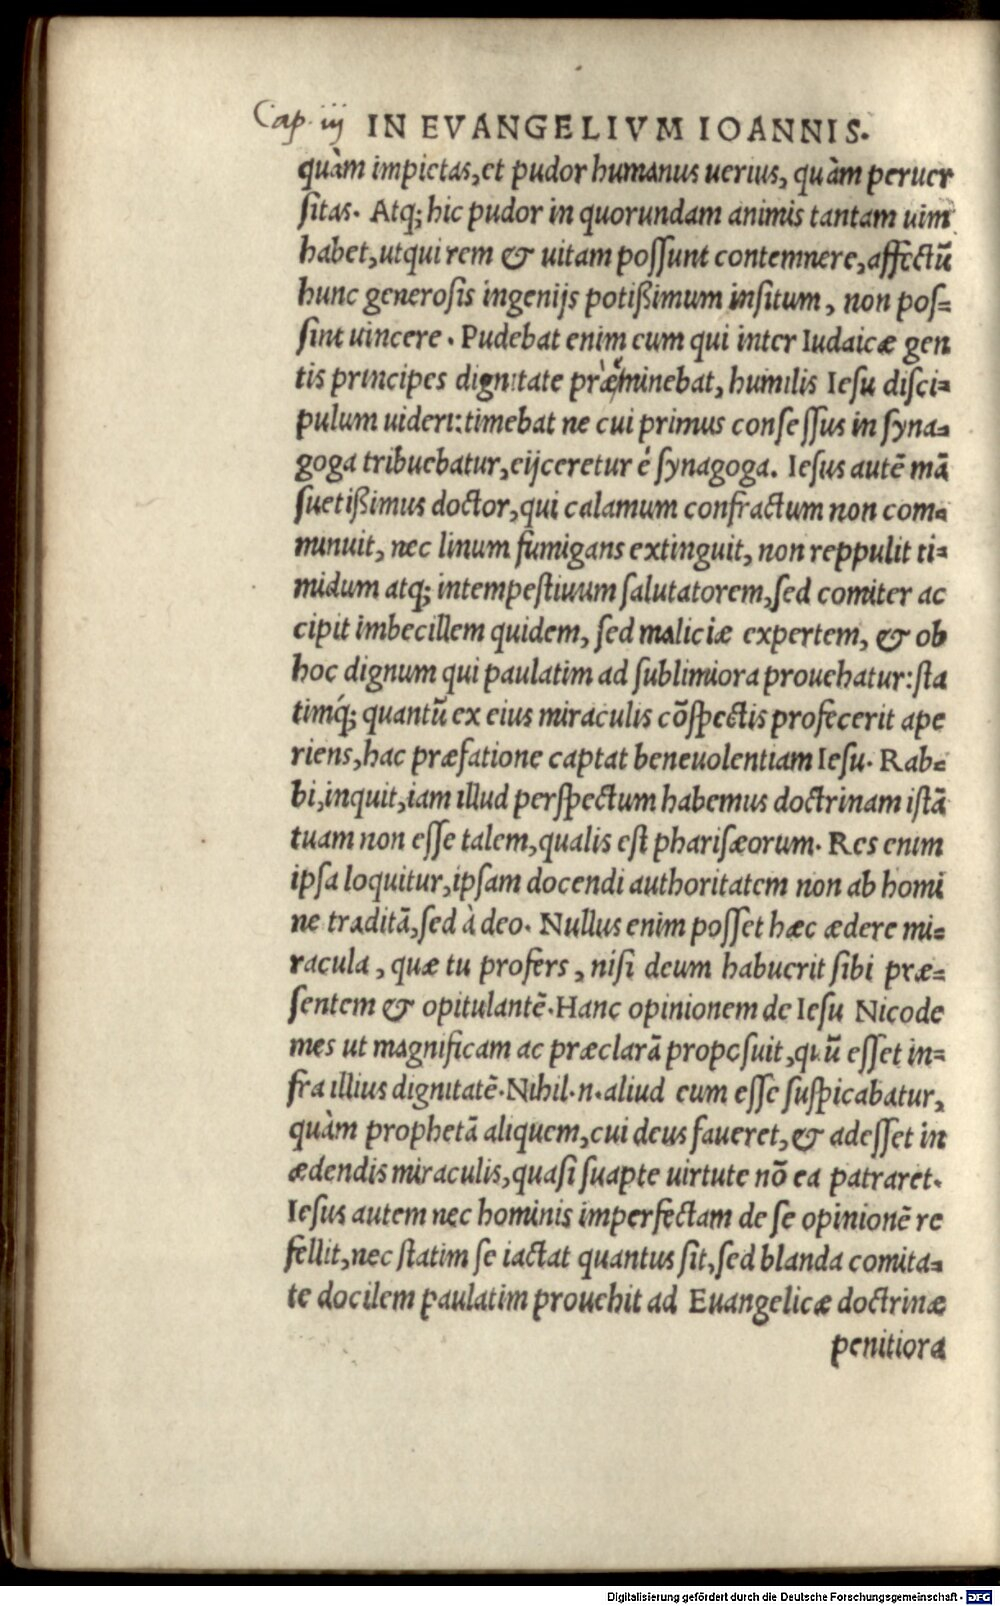 Cap. iij IN EVANGELIVM IOANNIS.
quàm impietas, et pudor humanus uerius, quàm peruer
sitas. Atq; hic pudor in quorundam animis tantam uim
habet, ut qui rem & uitam possunt contemnere, affectū
hunc generosis ingenijs potißimum insitum, non pos=
sint uincere. Pudebat enim eum qui inter Iudaicæ gen
tis principes dignitate præeminebat, humilis Iesu disci=
pulum uideri: timebat ne cui primus consessus in syna=
goga tribuebatur, eijceretur é synagoga. Iesus autē mā
suetißimus doctor, qui calamum confractum non com=
minuit, nec linum fumigans extinguit, non reppulit ti=
midum atq; intempestiuum salutatorem, sed comiter ac
cipit imbecillem quidem, sed maliciæ expertem, & ob
hoc dignum qui paulatim ad sublimiora prouehatur: sta
timq́; quantū ex eius miraculis cōspectis profecerit ape
riens, hac præfatione captat beneuolentiam Iesu. Rab=
bi, inquit, iam illud perspectum habemus doctrinam istā
tuam non esse talem, qualis est pharisæorum. Res enim
ipsa loquitur, ipsam docendi authoritatem non ab homi
ne traditā, sed à deo. Nullus enim posset hæc ædere mi=
racula, quæ tu profers, nisi deum habuerit sibi præ=
sentem & opitulantē. Hanc opinionem de Iesu Nicode
mes ut magnificam ac præclarā proposuit, quū esset in=
fra illius dignitatē. Nihil.n.aliud eum esse suspicabatur,
quàm prophetā aliquem, cui deus faueret, & adesset in
ædendis miraculis, quasi suapte uirtute nō ea patraret.
Iesus autem nec hominis imperfectam de se opinionē re
fellit, nec statim se iactat quantus sit, sed blanda comita=
te docilem paulatim prouehit ad Euangelicæ doctrinæ
penitiora
Digitalisierung gefördert durch die Deutsche Forschungsgemeinschaft - DFG